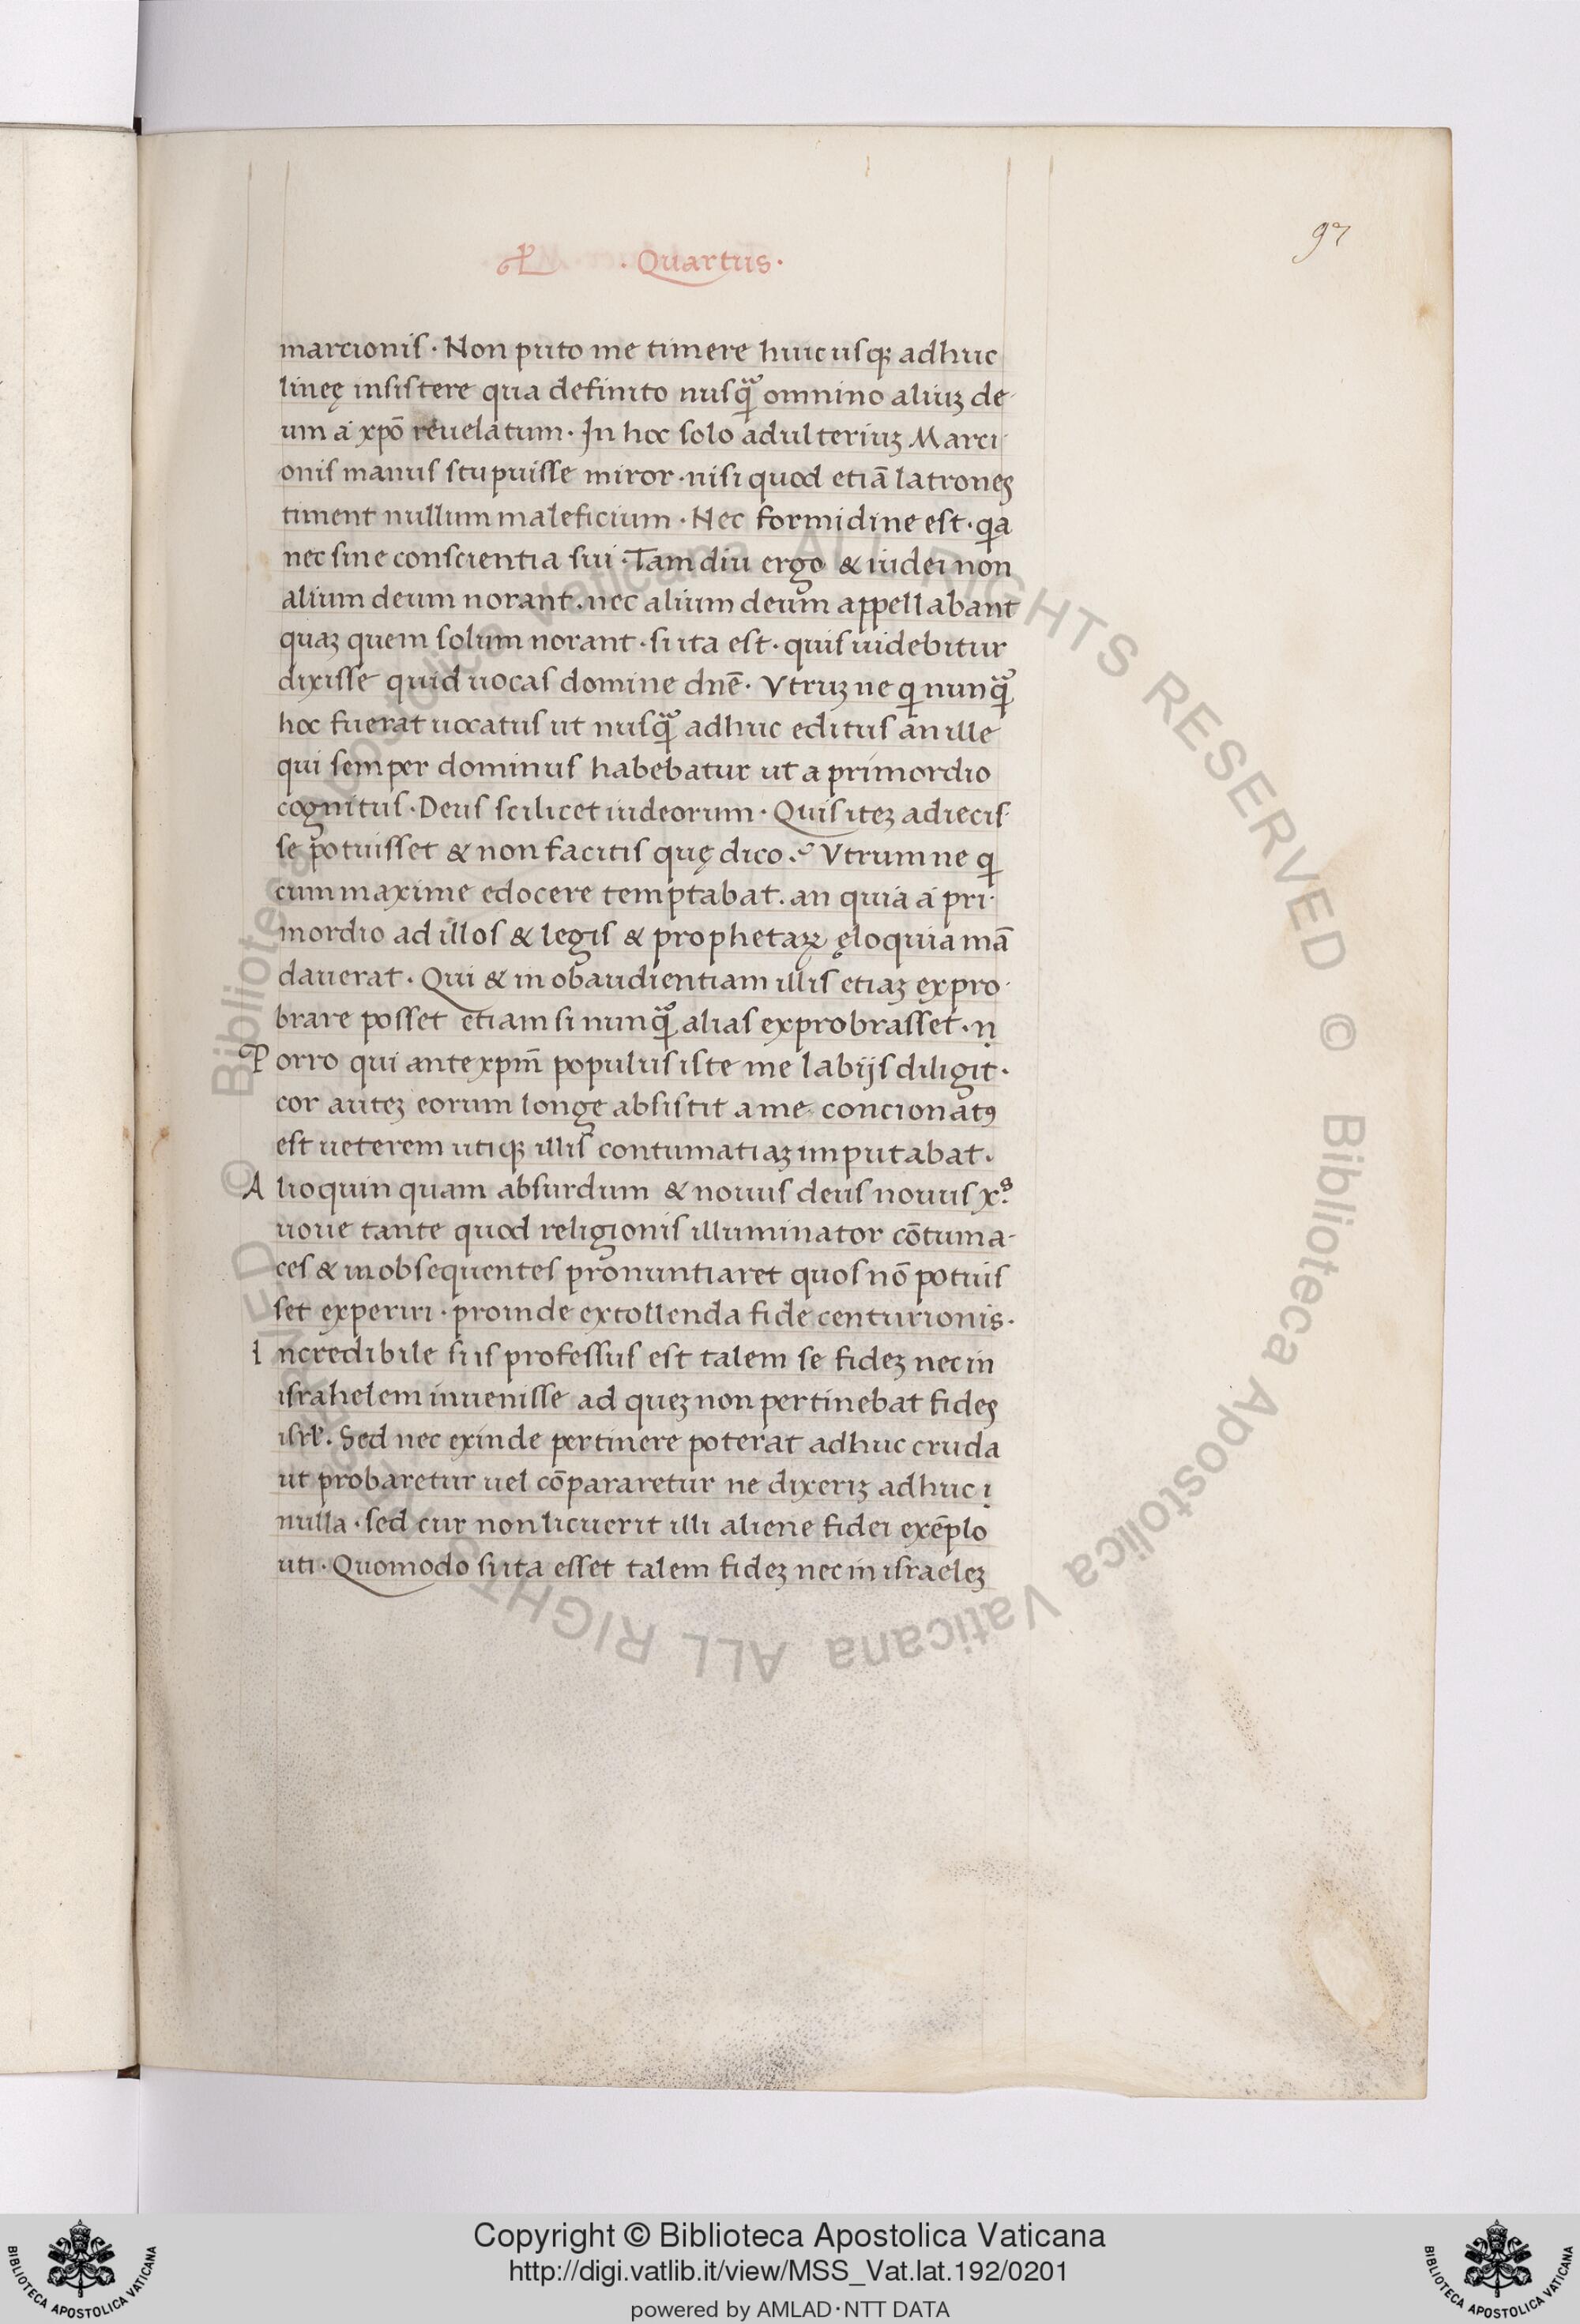 97
· Quartus ·
marcionis · Non puto me timere huicusqꝫ adhuc
lineę insistere qua definito nusꝗ̃ omnino aliuꝫ de-
um a xpō reuelatum · In hoc solo adulteriuꝫ Marci-
onis manus stupuisse miror · nisi quod etiā latrones
timent nullum maleficium · Nec formidine est · qa
nec sine conscientia sui · Tam diu ergo & iudei non
alium deum norant · nec alium deum appellabant
quaꝫ quem solum norant · si ita est · quis uidebitur
dixisse quid uocas domine dnē · Vtruꝫ ne qi nunꝗ̃
hoc fuerat uocatus ut nusꝗ̃ adhuc editus an ille
qui semper dominus habebatur ut a primordio
cognitus · Deus scilicet iudeorum · Quis iteꝫ adiecis-
se potuisset & non facitis quę dico ? Vtrum ne qi
cum maxime edocere temptabat · an quia a pri-
mordio ad illos & legis & prophetaꝝ ęloquia mā
dauerat · Qui & in obaudientiam illis etiaꝫ expro-
brare posset etiam si nunꝗ̃ alias exprobrasset · ṇ
Porro qui ante xpm̄ populus iste me labijs diligit ·
cor auteꝫ eorum longe absistit a me concionatꝰ
est ueterem utiqꝫ illis contumatiaꝫ imputabat ·
Alioquin quam absurdum & nouus deus nouus xꝰ
noue tante quod religionis illuminator cōtuma-
ces & inobsequentes pronuntiaret quos nō potuis
set experiri · proinde extollenda fide centurionis ·
incredibile si is professus est talem se fideꝫ nec in
israhelem inuenisse ad queꝫ non pertinebat fides
isrł · Sed nec exinde pertinere poterat adhuc cruda
ut probaretur uel cōpararetur ne dixeriꝫ adhuc ị
nulla · sed cur non licuerit illi aliene fidei exēplo
uti · Quomodo si ita esset talem fideꝫ nec in israeleꝫ
Copyright © Biblioteca Apostolica Vaticana
http://digi.vatlib.it/view/MSS_Vat.lat.192/0201
powered by AMLAD·NTT DATA
BIBLIOTECA APOSTOLICA VATICANA
BIBLIOTECA APOSTOLICA VATICANA
© Biblioteca Apostolica Vaticana ALL RIGHTS RESERVED © Biblioteca Apostolica Vaticana ALL RIGHTS RESERVED